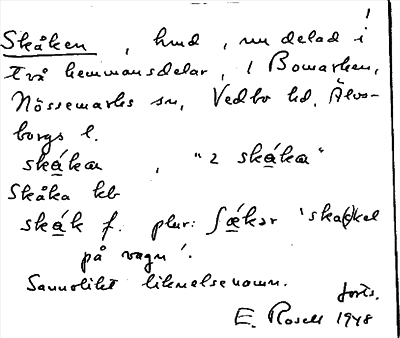 !
Skåken, hmd, nu delad i
två hemmansdelar, i Bomarken,
Nössemarks sn, Vedbo hd, Älvs-
borgs l.
skákɑ, "2 skákɑ"
Skåka kb
skák f. plur: ʃǽkər 'ska(c)kel
på vagn'.
Sannolikt liknelsenamn.
forts.
E. Rosell 1948